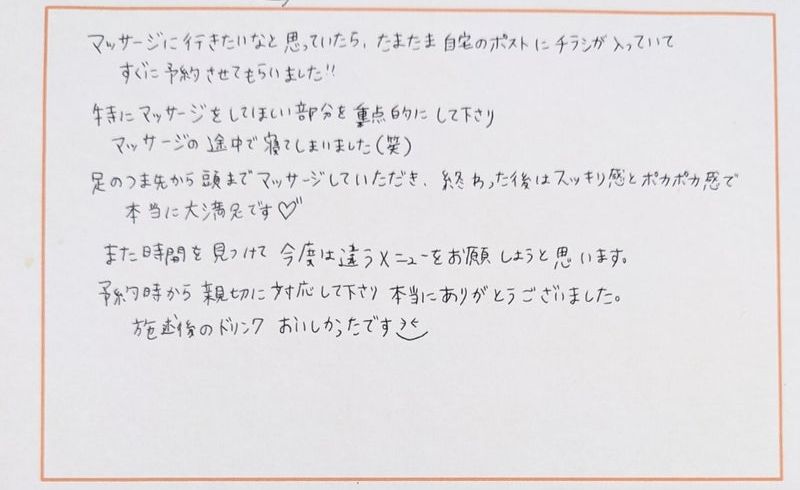 マッサージに行きたいなと思っていたら、たまたま自宅のポストにチラシが入っていて
すぐに予約させてもらいました!!
特にマッサージをしてほしい部分を重点的にして下さり
マッサージの途中で寝てしまいました(笑)
足のつま先から頭までマッサージしていただき、終わった後はスッキリ感とポカポカ感で
本当に大満足です♡
また時間を見つけて今度は違うメニューをお願しようと思います。
予約時から親切に対応して下さり本当にありがとうございました。
施述後のドリンクおいしかったです